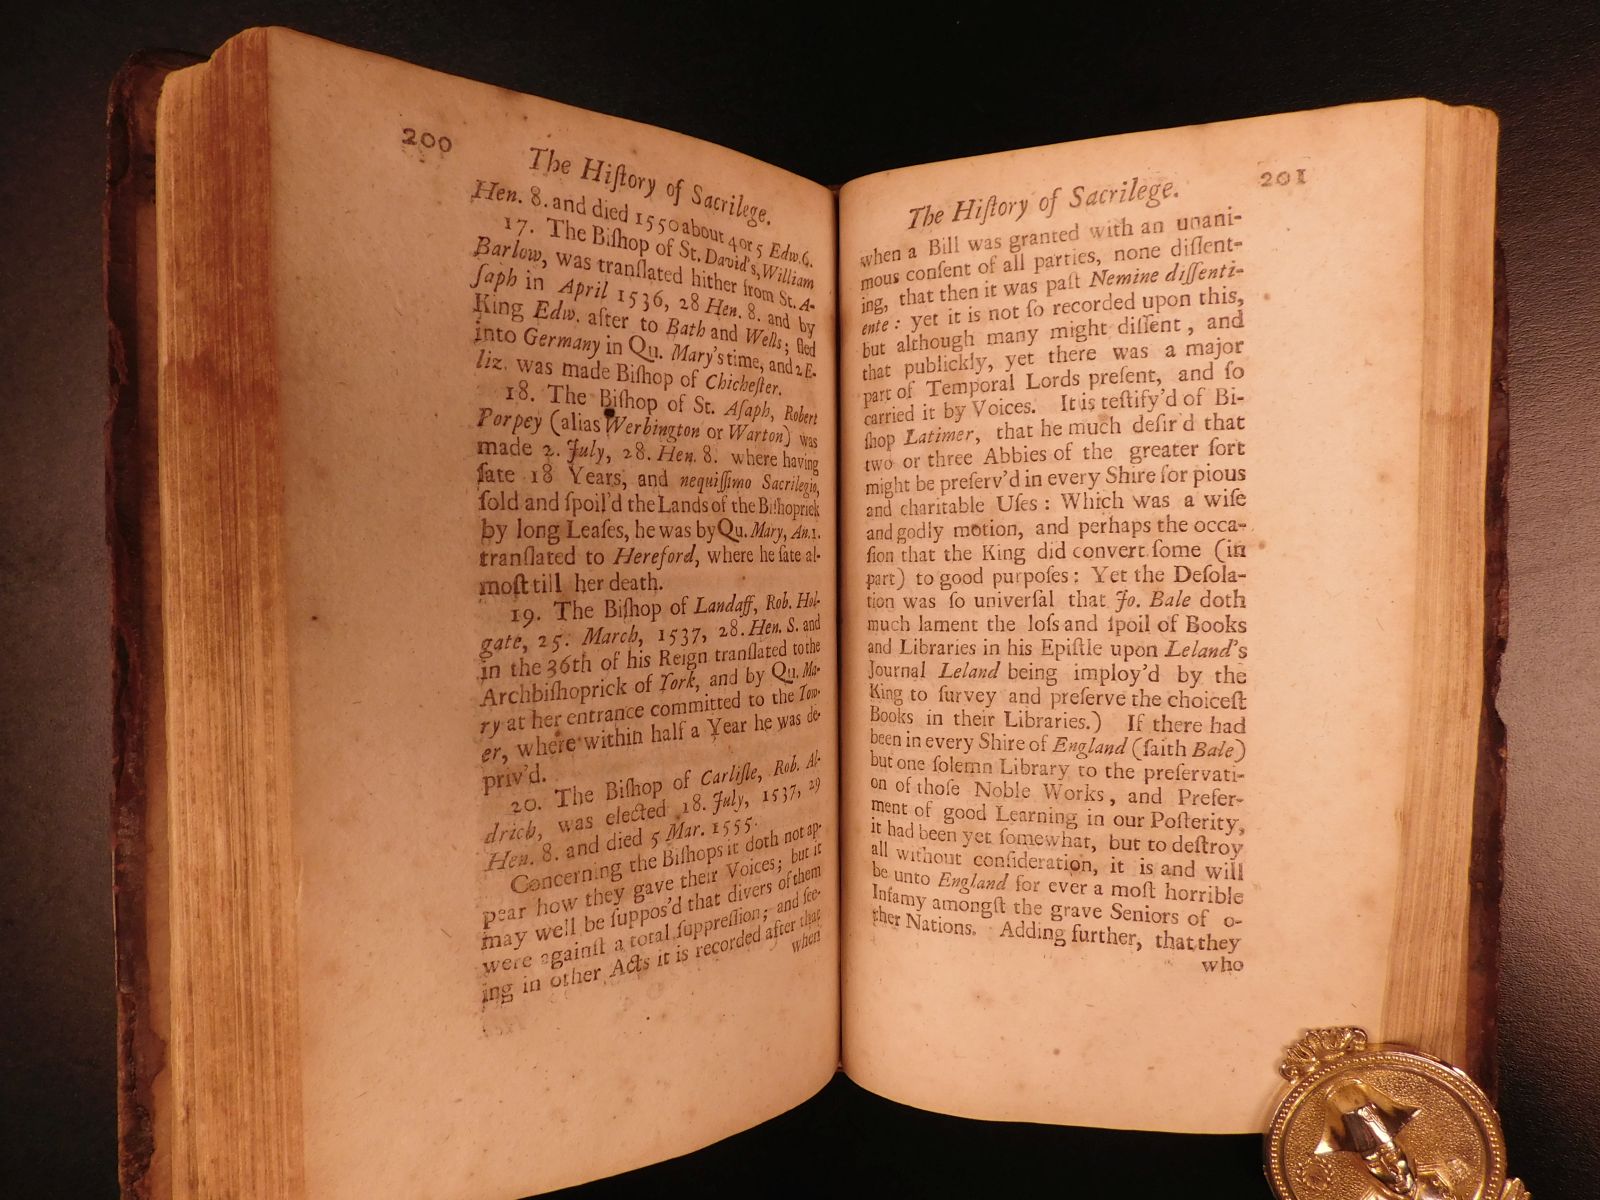 200
The Hiſtory of Sacrilege.
Hen. 8. and died 1550 about 4 or 5 Edw. 6.
17. The Biſhop of St. David's, William
Barlow, was tranſlated hither from St. A-
ſaph in April 1536, 28 Hen. 8. and by
King Edw. after to Bath and Wells; fled
into Germany in Qu. Mary's time, and 2 E-
liz. was made Biſhop of Chicheſter.
18. The Biſhop of St. Aſaph, Robert
Porpey (alias Werbington or Warton) was
made 2. July, 28. Hen. 8. where having
ſate 18 Years, and nequiſſimo Sacrilegio,
ſold and ſpoil'd the Lands of the Biſhoprick
by long Leaſes, he was by Qu. Mary, An. 1.
tranſlated to Hereford, where he ſate al-
moſt till her death.
19. The Biſhop of Landaff, Rob. Hol-
gate, 25. March, 1537, 28. Hen. S. and
in the 36th of his Reign tranſlated to the
Archbiſhoprick of York, and by Qu. Ma-
ry at her entrance committed to the Tow-
er, where within half a Year he was de-
priv'd.
20. The Biſhop of Carliſle, Rob. Al-
drich, was elected 18. July, 1537, 29
Hen. 8. and died 5 Mar. 1555.
Concerning the Biſhops it doth not ap-
pear how they gave their Voices; but it
may well be ſuppos'd that divers of them
were againſt a total ſuppreſſion; and ſee-
ing in other Acts it is recorded after that
when
201
The Hiſtory of Sacrilege.
when a Bill was granted with an unani-
mous conſent of all parties, none diſſent-
ing, that then it was paſt Nemine diſſenti-
ente: yet it is not ſo recorded upon this,
but although many might diſſent, and
that publickly, yet there was a major
part of Temporal Lords preſent, and ſo
carried it by Voices. It is teſtify'd of Bi-
ſhop Latimer, that he much deſir'd that
two or three Abbies of the greater ſort
might be preſerv'd in every Shire for pious
and charitable Uſes: Which was a wiſe
and godly motion, and perhaps the occa-
ſion that the King did convert ſome (in
part) to good purpoſes: Yet the Deſola-
tion was ſo univerſal that Jo. Bale doth
much lament the loſs and ſpoil of Books
and Libraries in his Epiſtle upon Leland's
Journal Leland being imploy'd by the
King to ſurvey and preſerve the choiceſt
Books in their Libraries.) If there had
been in every Shire of England (ſaith Bale)
but one ſolemn Library to the preſervati-
on of thoſe Noble Works, and Prefer-
ment of good Learning in our Poſterity,
it had been yet ſomewhat, but to deſtroy
all without conſideration, it is and will
be unto England for ever a moſt horrible
Infamy amongſt the grave Seniors of o-
ther Nations. Adding further, that they
who